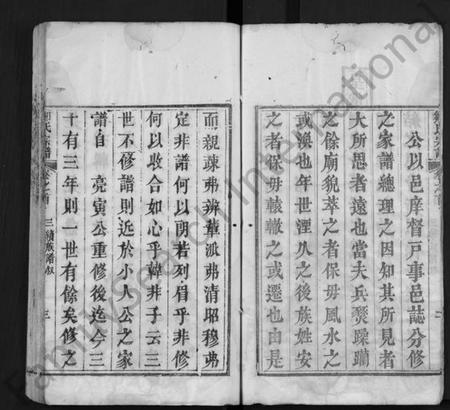 公以邑庠督戸事邑誌分修
之家譜總理之因知其所見者
大所思者遠也當夫兵燹蹂躪
之餘廟貌萃之者保毋風水之
或渙也年世湮㠯之後族姓安
之者保毋轇轕之或遷也由是
而親疎弗辨輩派弗清昭穆弗
定非譜何以朗若列眉乎非修
何以收合如心乎韓非子云三
世不修譜則近於小人公之家
譜自 亮寅公重修後迄今三
十有三年則一世有餘矣修之
氏宗譜
卷之首
三續族譜叙
三
Family Search International